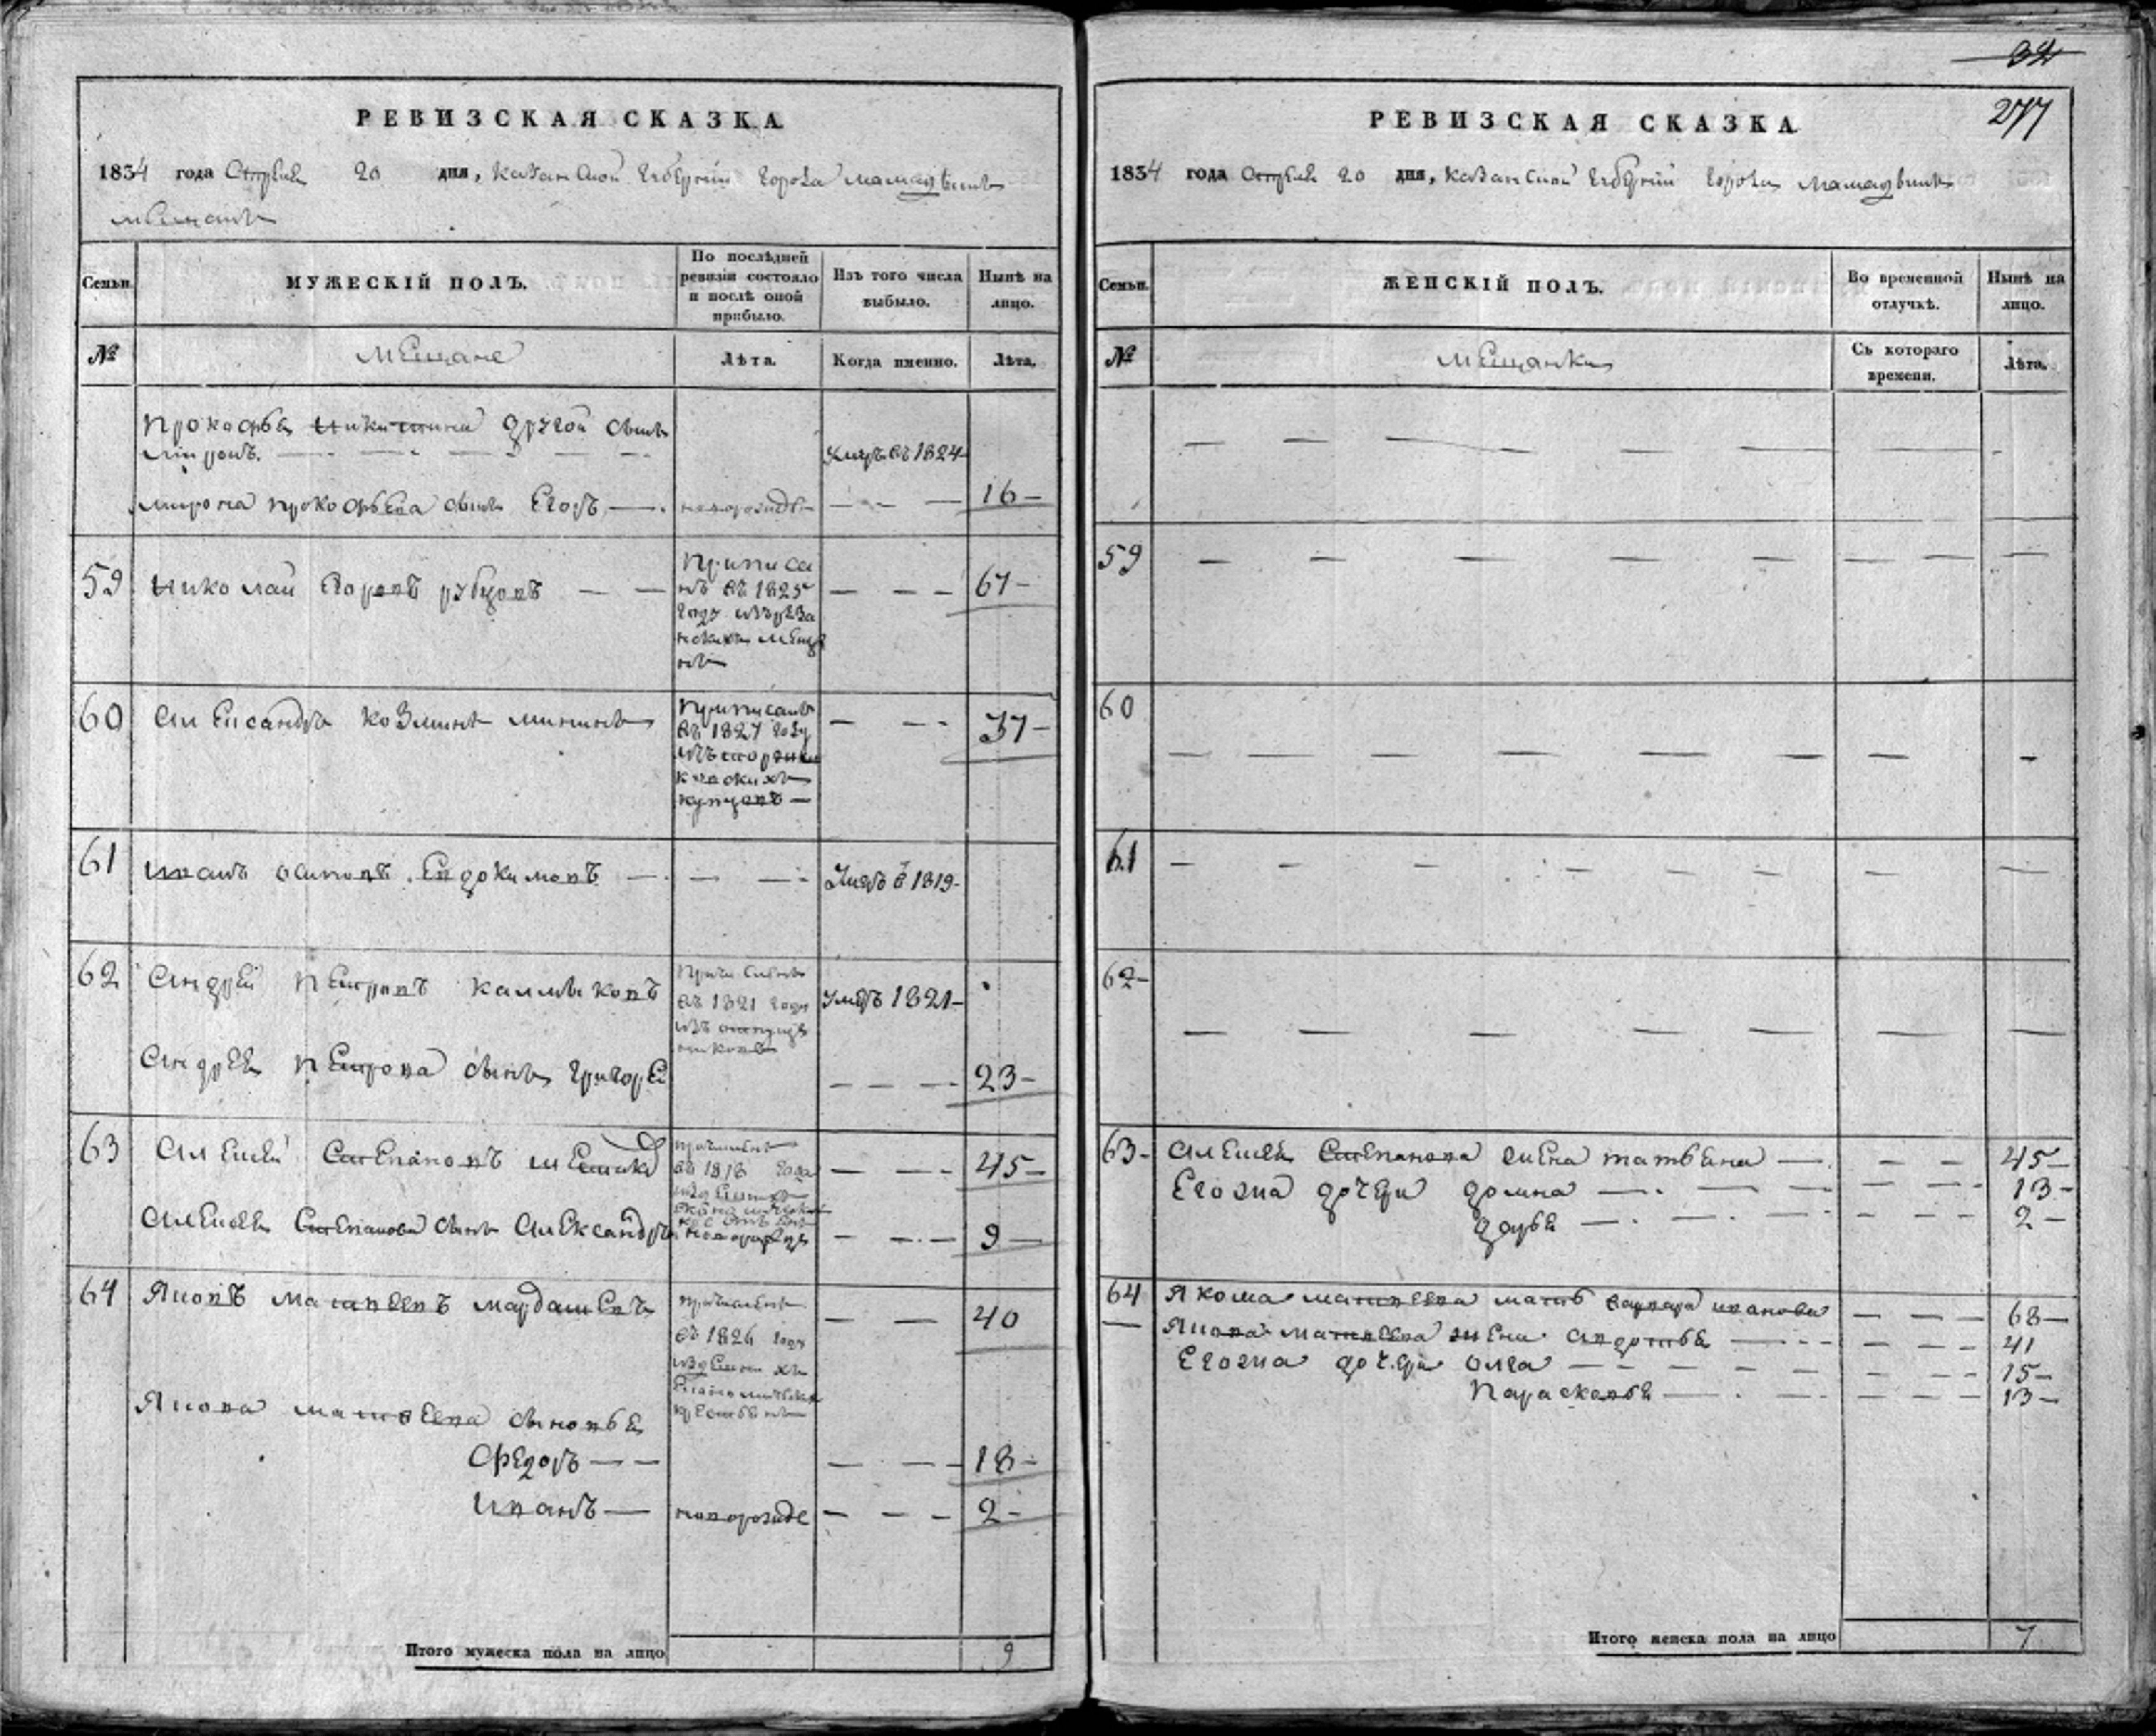 32
277
РЕВИЗСКАЯ СКАЗКА
1834 года Апреля 20 дня, Казанской Губернiи города Мамадыша
мещанъ
Семьи.
МУЖЕСКІЙ ПОЛЪ.
По послѣдней
ревизіи состояло
и послѣ оной
прибыло.
Изъ того числа
выбыло.
Нынѣ на
лицо.
№
Мещане
Лѣта.
Когда именно.
Лѣта.
Прокофья Никитина другой сынъ
Миронъ.
умръ въ 1824
Мирона Прокофьева сынъ Егоръ новорожде 16
59 Николай Егоровъ Рубцовъ 67
Приписа
нъ въ 1825
году
60 Александръ Козминъ Мининъ 37
Приписанъ
въ 1827 году
купцовъ
61 Иванъ Осиповъ Евдокимовъ умръ в 1819
62 Андрей Петровъ Калмыковъ умръ 1821
въ 1821 году
изъ отпуще
никовъ
Андрея Петрова сынъ Григорей 23
63 Алексей Степановъ 45
въ 1816 года
Алексея Степанова сынъ Александръ новорожде 9
64 Яковъ Матвеевъ Мардашевъ 40
въ 1826 году
Якова Матвеева сыновья
Федоръ 18
Иванъ новорожде 2
Итого мужеска пола на лицо 9
РЕВИЗСКАЯ СКАЗКА
1834 года Апреля 20 дня, Казанской Губернiи города Мамадыша
Семьи.
ЖЕНСКІЙ ПОЛЪ.
Во временной
отлучкѣ.
Нынѣ на
лицо.
№
Мещанки
Съ котораго
времени.
Лѣта.
59
60
61
62
63 Алексея Степанова жена Татьяна 45
Егожа дочери Домна 13
Дарья 2
64 Якова Матвеева мать Варвара Иванова 68
Якова Матвеева жена Авдотья 41
Егожа дочери Олга 15
Парасковья 13
Итого женска пола на лицо 7